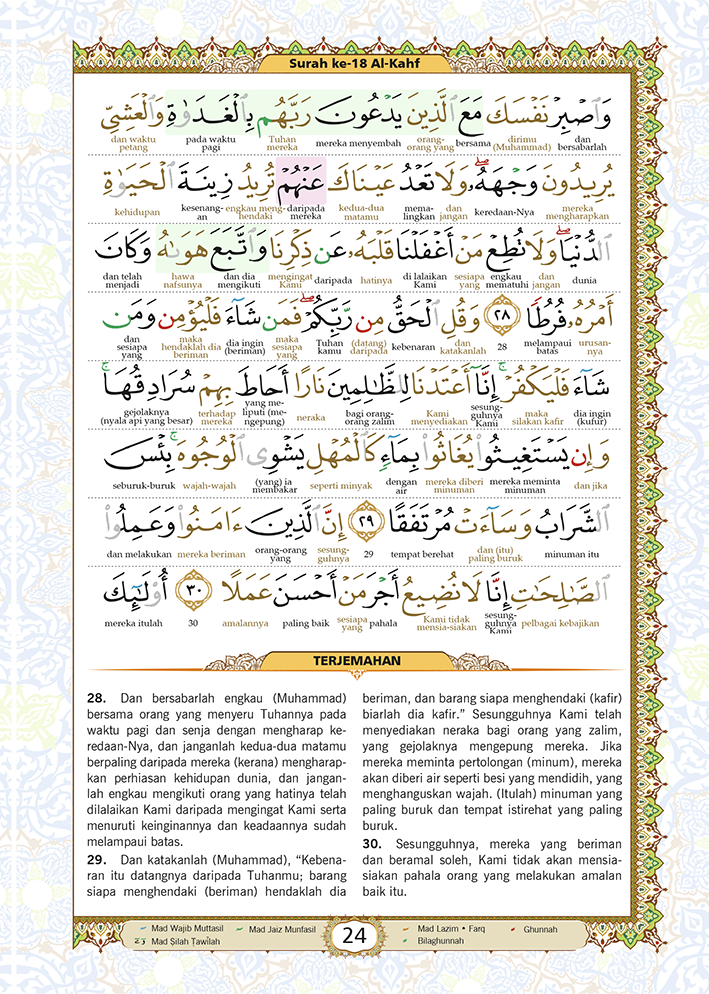 Surah ke-18 Al-Kahf
وَٱصْبِرْ نَفْسَكَ مَعَ ٱلَّذِينَ يَدْعُونَ رَبَّهُم بِٱلْغَدَوٰةِ وَٱلْعَشِىِّ
dan bersabarlah dirimu (Muhammad) bersama orang-orang yang mereka menyembah Tuhan mereka pada waktu pagi dan waktu petang
يُرِيدُونَ وَجْهَهُۥ ۖ وَلَا تَعْدُ عَيْنَاكَ عَنْهُمْ تُرِيدُ زِينَةَ ٱلْحَيَوٰةِ
mereka mengharapkan keredaan-Nya dan jangan memalingkan kedua-dua matamu daripada mereka engkau menghendaki kesenangan kehidupan
ٱلدُّنْيَا ۖ وَلَا تُطِعْ مَنْ أَغْفَلْنَا قَلْبَهُۥ عَن ذِكْرِنَا وَٱتَّبَعَ هَوَىٰهُ وَكَانَ
dunia dan jangan engkau mematuhi sesiapa yang di lalaikan Kami hatinya daripada mengingat Kami dan dia mengikuti hawa nafsunya dan telah menjadi
أَمْرُهُۥ فُرُطًا ٢٨ وَقُلِ ٱلْحَقُّ مِن رَّبِّكُمْ ۖ فَمَن شَآءَ فَلْيُؤْمِن وَمَن
urusan-nya melampaui batas 28 dan katakanlah kebenaran (datang) daripada Tuhan kamu maka sesiapa yang dia ingin (beriman) maka hendaklah dia beriman dan sesiapa yang
شَآءَ فَلْيَكْفُرْ ۚ إِنَّآ أَعْتَدْنَا لِلظَّـٰلِمِينَ نَارًا أَحَاطَ بِهِمْ سُرَادِقُهَا ۚ
dia ingin (kufur) maka silakan kafir sesungguhnya Kami Kami menyediakan bagi orang-orang zalim neraka yang meliputi (mengepung) terhadap mereka gejolaknya (nyala api yang besar)
وَإِن يَسْتَغِيثُوا۟ يُغَاثُوا۟ بِمَآءٍ كَٱلْمُهْلِ يَشْوِى ٱلْوُجُوهَ ۚ بِئْسَ
dan jika mereka meminta minuman mereka diberi minuman dengan air seperti minyak (yang) ia membakar wajah-wajah seburuk-buruk
ٱلشَّرَابُ وَسَآءَتْ مُرْتَفَقًا ٢٩ إِنَّ ٱلَّذِينَ ءَامَنُوا۟ وَعَمِلُوا۟
minuman itu dan (itu) paling buruk tempat berehat 29 sesung-guhnya orang-orang yang mereka beriman dan melakukan
ٱلصَّـٰلِحَـٰتِ إِنَّا لَا نُضِيعُ أَجْرَ مَنْ أَحْسَنَ عَمَلًا ٣٠ أُو۟لَـٰٓئِكَ
pelbagai kebajikan sesung-guhnya Kami Kami tidak mensia-siakan pahala sesiapa yang paling baik amalannya 30 mereka itulah
TERJEMAHAN
28. Dan bersabarlah engkau (Muhammad)
bersama orang yang menyeru Tuhannya pada
waktu pagi dan senja dengan mengharap ke-
redaan-Nya, dan janganlah kedua-dua matamu
berpaling daripada mereka (kerana) mengharap-
kan perhiasan kehidupan dunia, dan jangan-
lah engkau mengikuti orang yang hatinya telah
dilalaikan Kami daripada mengingat Kami serta
menuruti keinginannya dan keadaannya sudah
melampaui batas.
29. Dan katakanlah (Muhammad), “Kebena-
ran itu datangnya daripada Tuhanmu; barang
siapa menghendaki (beriman) hendaklah dia
beriman, dan barang siapa menghendaki (kafir)
biarlah dia kafir.” Sesungguhnya Kami telah
menyediakan neraka bagi orang yang zalim,
yang gejolaknya mengepung mereka. Jika
mereka meminta pertolongan (minum), mereka
akan diberi air seperti besi yang mendidih, yang
menghanguskan wajah. (Itulah) minuman yang
paling buruk dan tempat istirehat yang paling
buruk.
30. Sesungguhnya, mereka yang beriman
dan beramal soleh, Kami tidak akan mensia-
siakan pahala orang yang melakukan amalan
baik itu.
Mad Wajib Muttasil Mad Jaiz Munfasil
Mad Ṣilah Ṭawīlah
24
Mad Lazim • Farq Ghunnah
Bilaghunnah